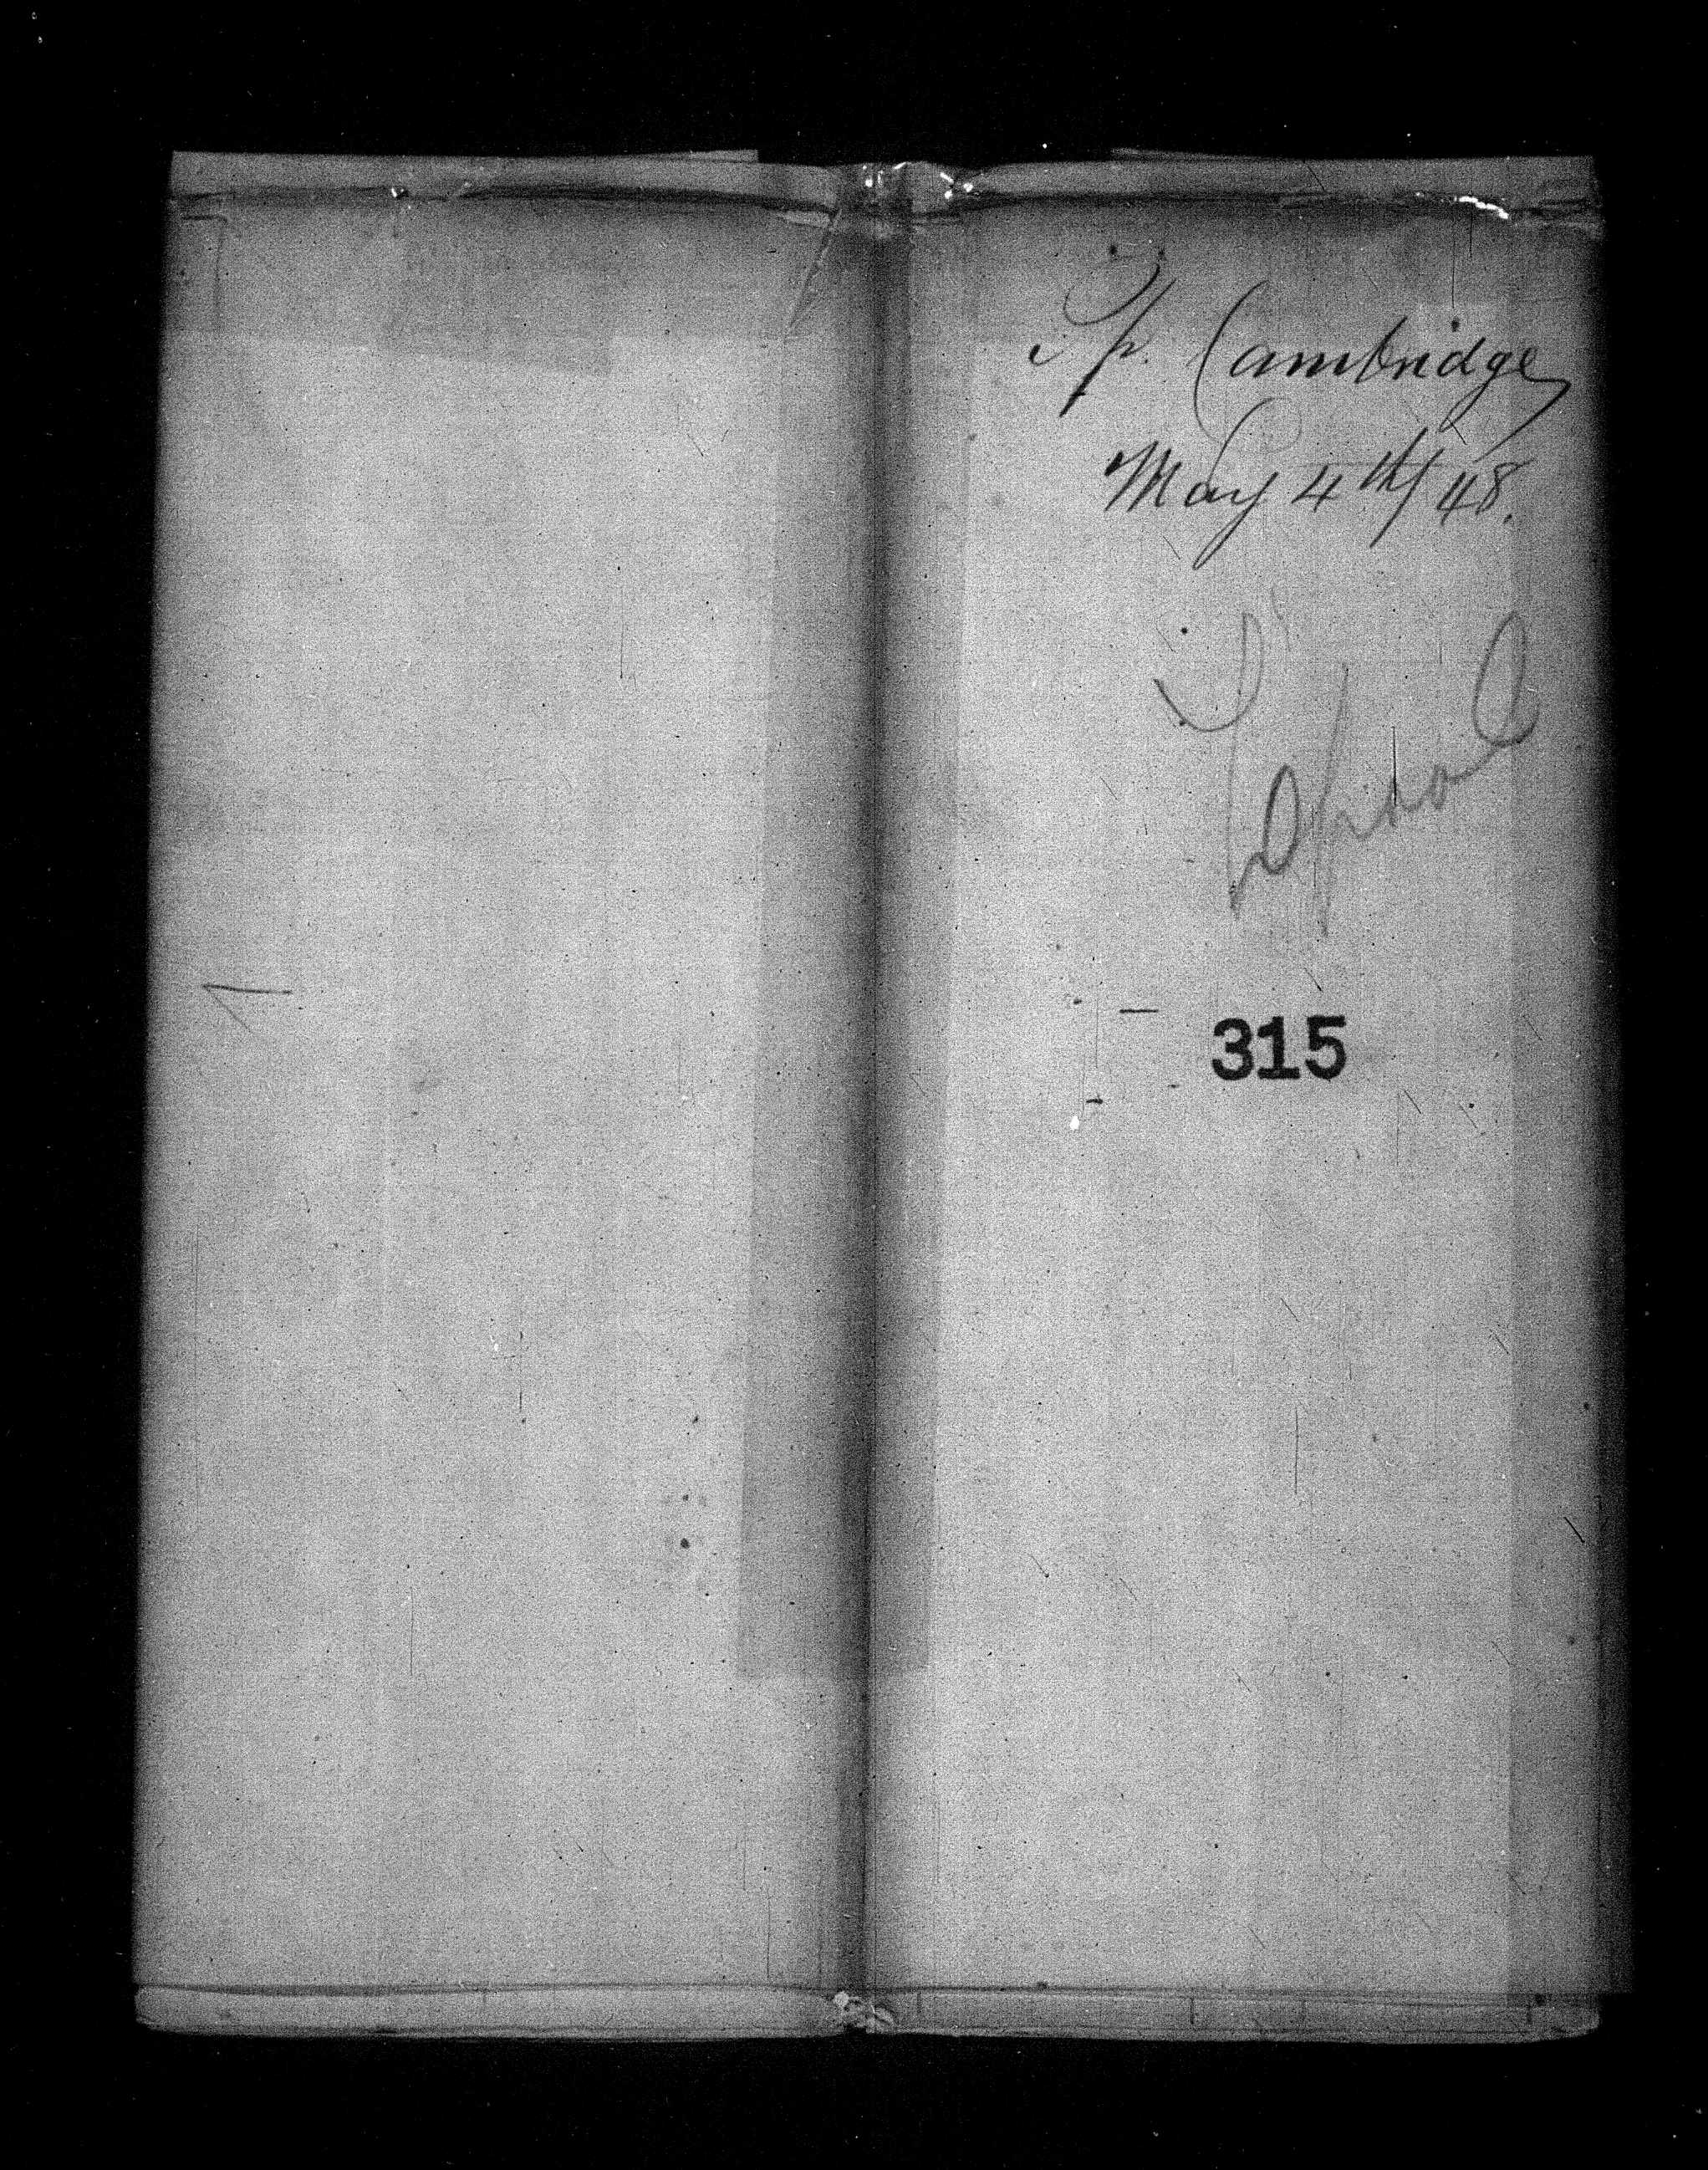 Tp. Cambridge
May 4th/48.
315